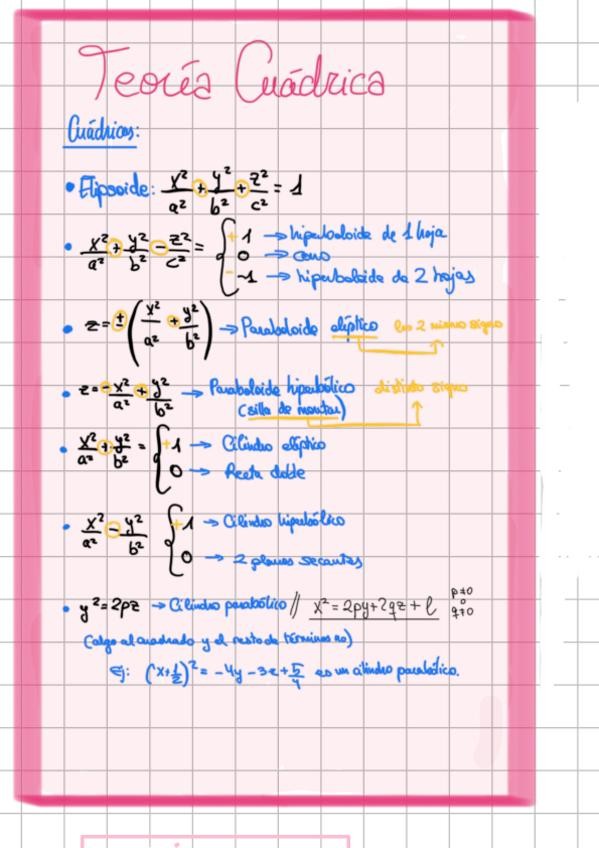 Teoría Cuádrica
Cuádricas:
• Elipsoide: x²/a² + y²/b² + z²/c² = 1
• x²/a² + y²/b² - z²/c² = { +1 → hiperboloide de 1 hoja
0 → cono
-1 → hiperboloide de 2 hojas
• z = ± (x²/a² + y²/b²) → Paraboloide elíptico los 2 mismo signo
• z = - x²/a² + y²/b² → Paraboloide hiperbólico distinto signo
(silla de montar)
• x²/a² + y²/b² = { +1 → Cilindro elíptico
0 → Recta doble
• x²/a² - y²/b² { +1 → Cilindro hiperbólico
0 → 2 planos secantes
• y² = 2pz → Cilindro parabólico // x² = 2py + 2qz + l p≠0 o q≠0
(algo al cuadrado y el resto de términos no)
Ej: (x + 1/2)² = -4y - 3z + 5/4 es un cilindro parabólico.